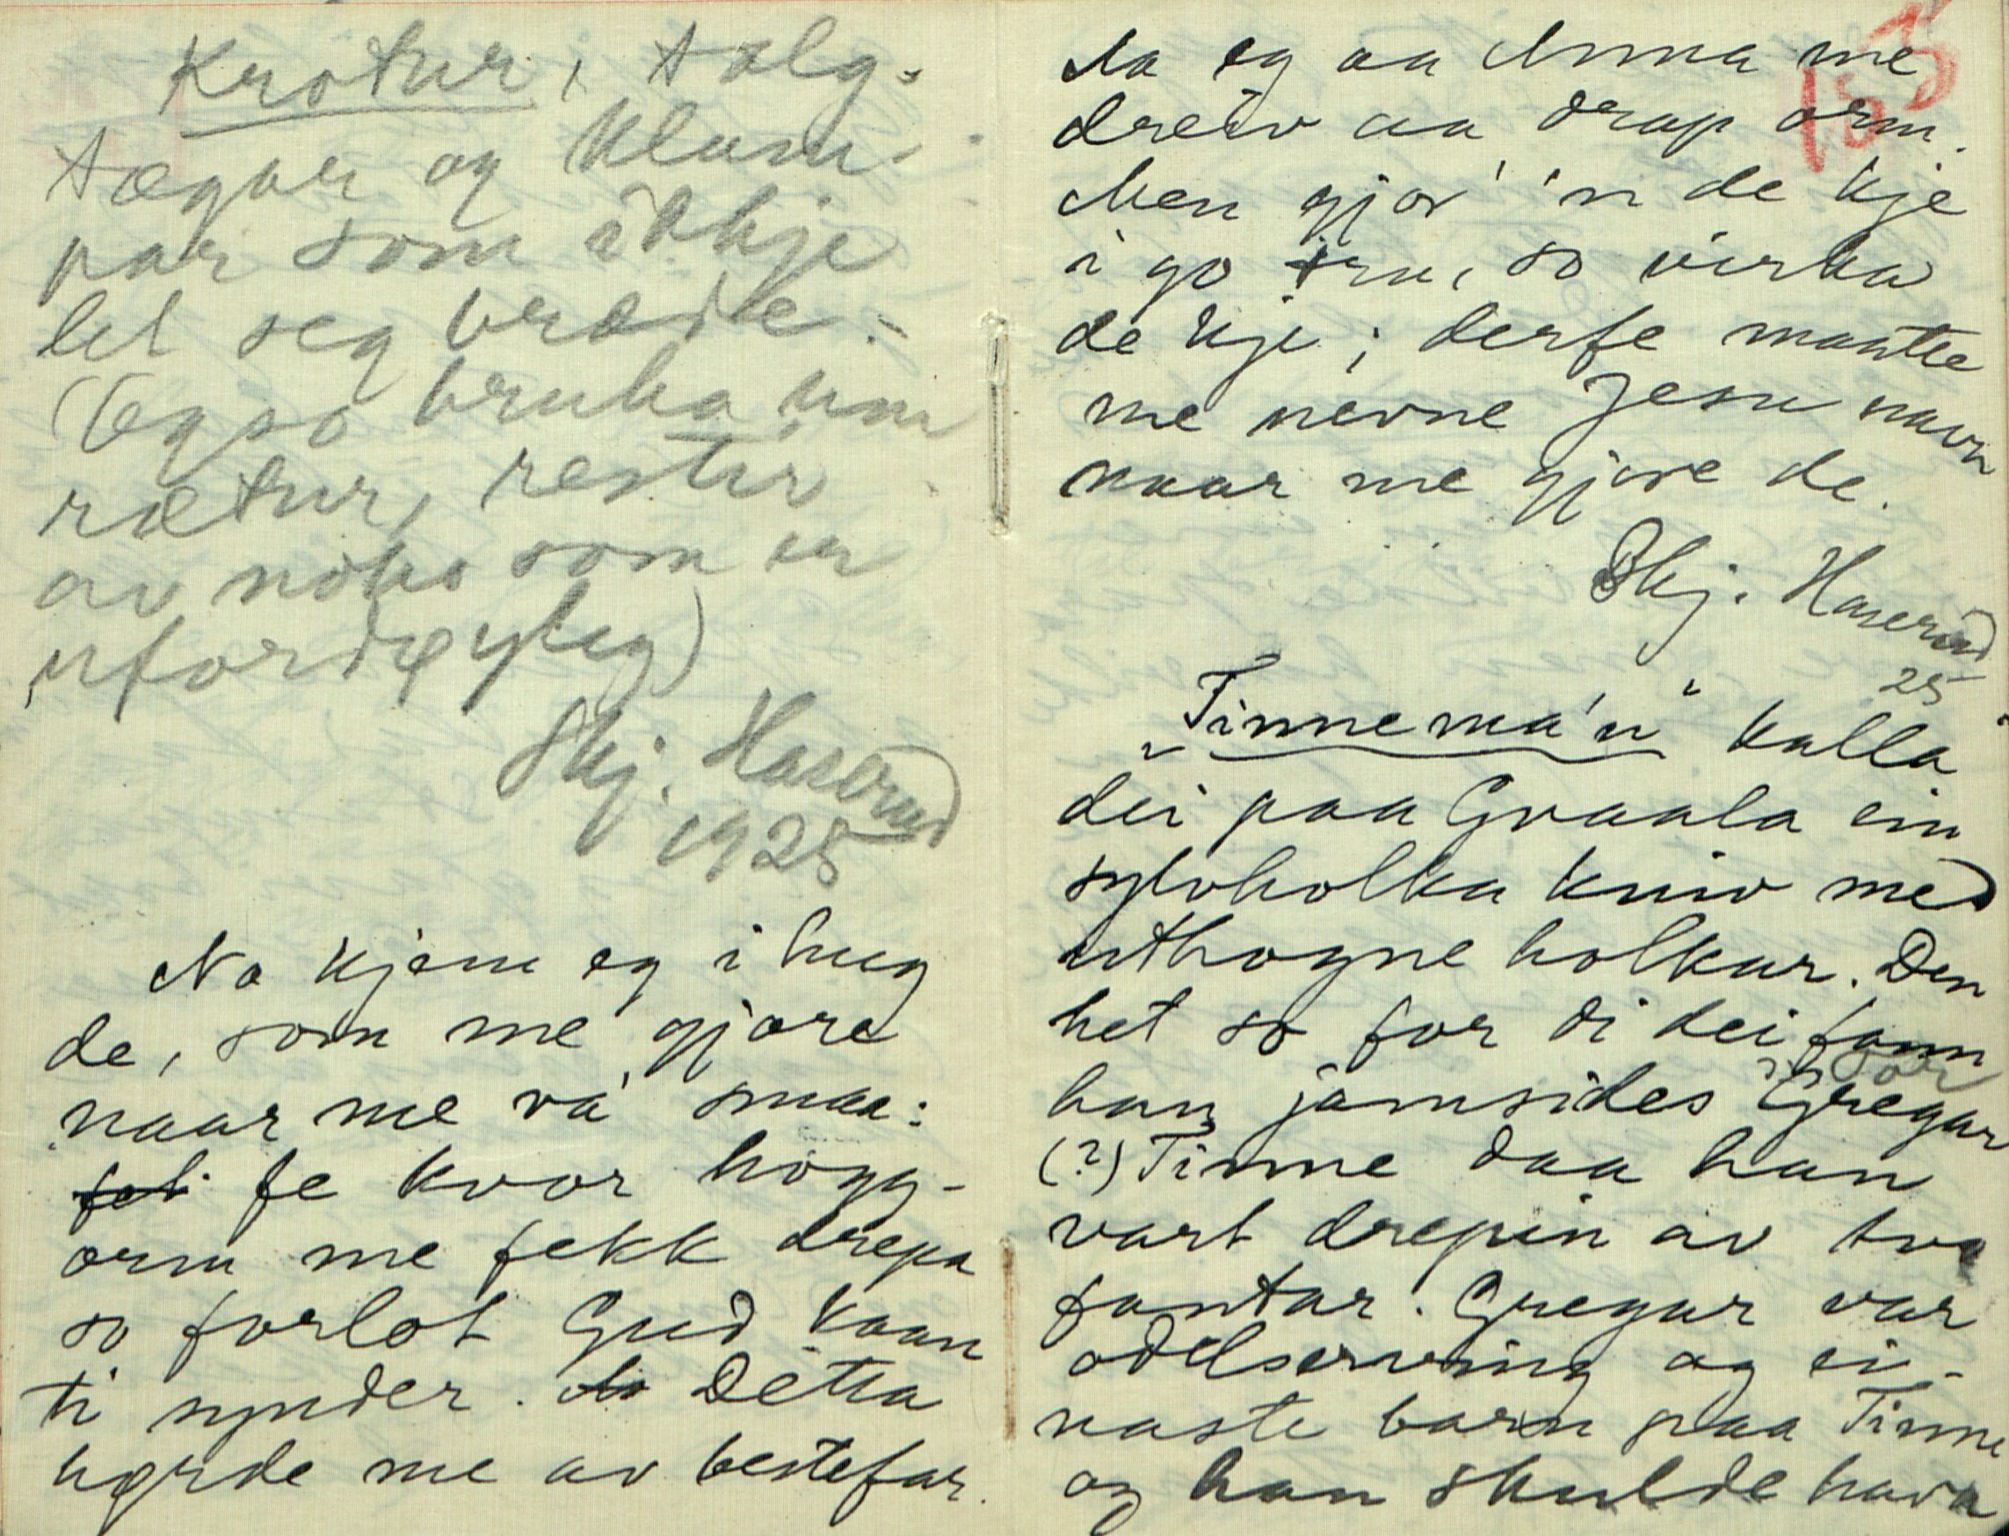 Krotur, talg-
tægar og klum-
par som ikkje
let seg bræde.
(Ogso bruka um
rætur, restir
av noko som er
ufordøyeleg)
Skj. Haserud
1925
No kjem eg i hug
de, som me gjore
naar me va' smaa:
fe kvor hogg-
orm me fekk drepa
so forlot Gud kaan
ti synder. Detta
hørde me av bestefar.
155
Aa eg aa Anna me
dreiv aa drap orm.
Men gjor' 'n de kje
i go tru, so virka
de kje; derfe maatte
me nevne Jesu navn
naar me gjore de.
Skj. Haserud
25
"Tinnema'n" kalla
dei paa Graala ein
sylvholka kniv med
uthogne holkar. Den
het so for di dei fann
han jamsides Gregar
(?) Tinne daa han
vart drepin av tvo
fantar. Gregar var
odelserving og ei-
naste barn paa Tinne
og han skulde hava